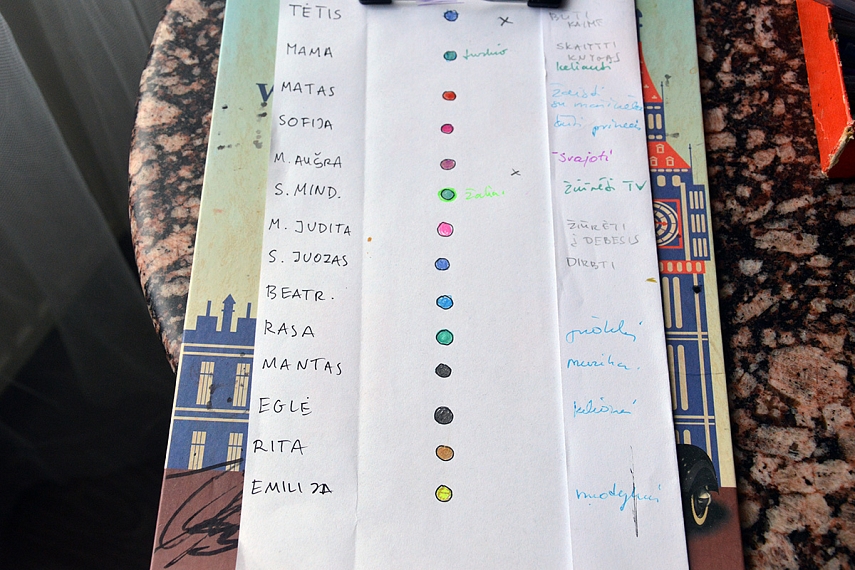 TĖTIS x BŪTI
KAIME
MAMA SKAITYTI
KNYGAS
keliauti
MATAS žaisti
su
SOFIJA būti
M. AUŠRA Svajoti
x
S. MIND. žalia ŽIŪRĖTI TV
M. JUDITA ŽIŪRĖTI
Į DEBESIS
S. JUOZAS DIRBTI
BEATR.
RASA
MANTAS muzika.
EGLĖ
RITA
EMILIJA